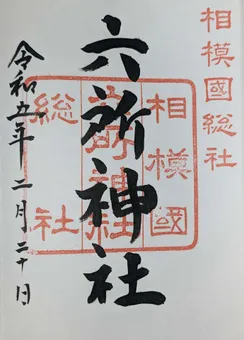 相模國総社
六所神社
相模國
六所神社
総社
令和五年二月二十日